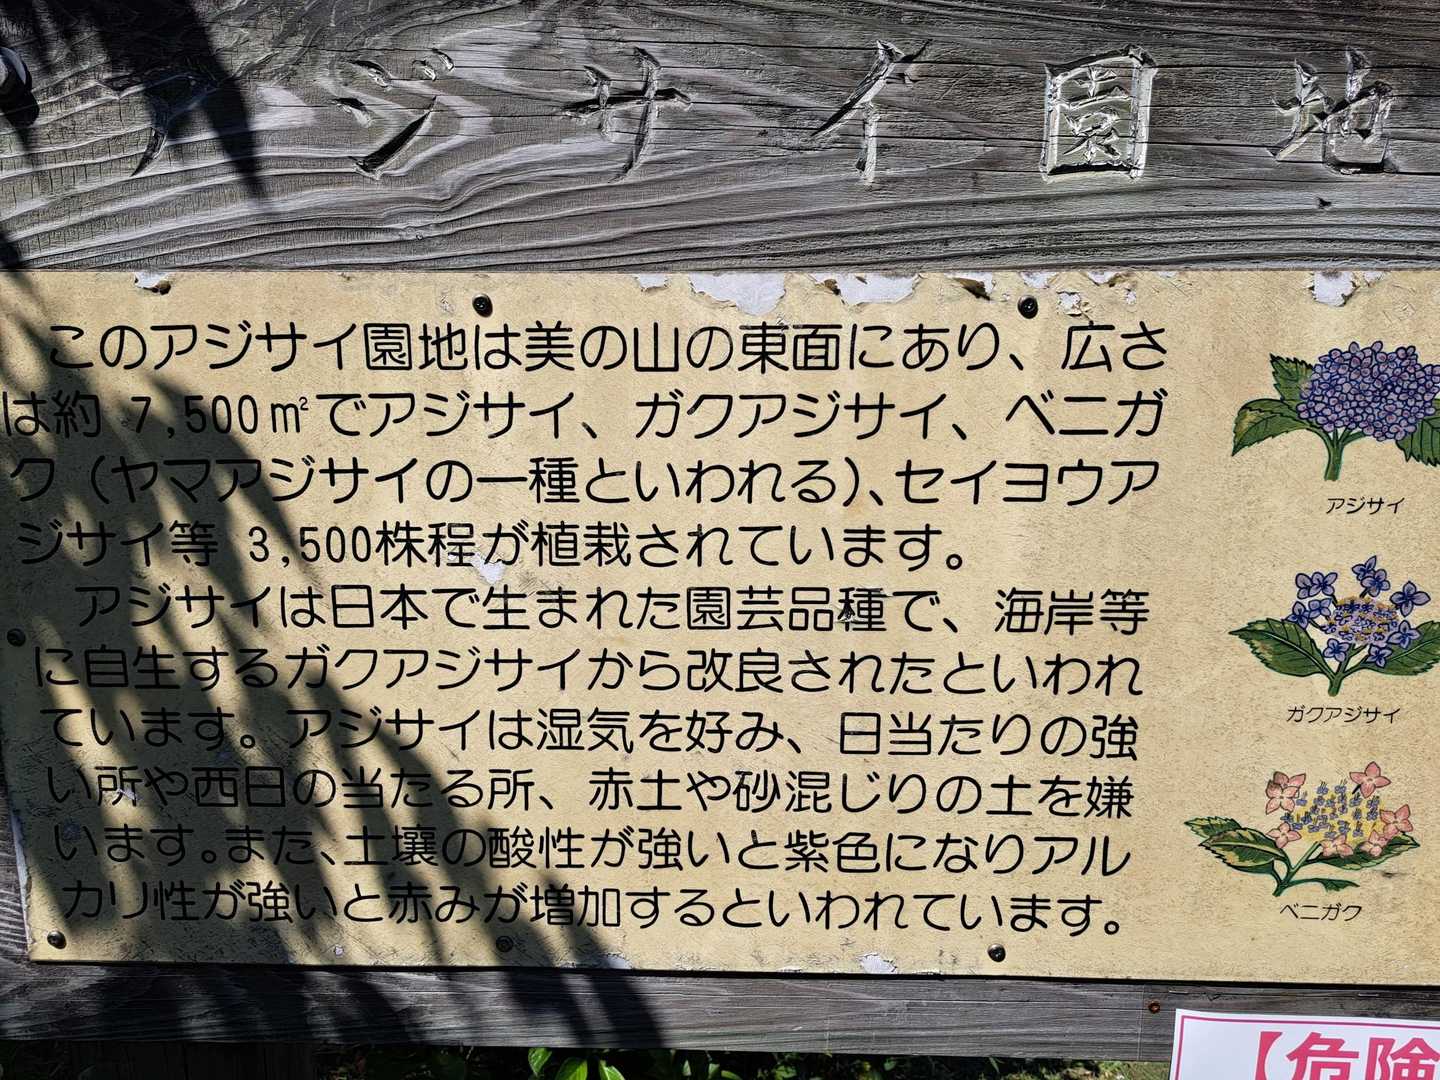 アジサイ園地
このアジサイ園地は美の山の東面にあり、広さ
は約 7,500㎡でアジサイ、ガクアジサイ、ベニガ
ク（ヤマアジサイの一種といわれる）、セイヨウア
ジサイ等 3,500株程が植栽されています。
アジサイは日本で生まれた園芸品種で、海岸等
に自生するガクアジサイから改良されたといわれ
ています。アジサイは湿気を好み、日当たりの強
い所や西日の当たる所、赤土や砂混じりの土を嫌
います。また、土壌の酸性が強いと紫色になりアル
カリ性が強いと赤みが増加するといわれています。
アジサイ
ガクアジサイ
ベニガク
【危険